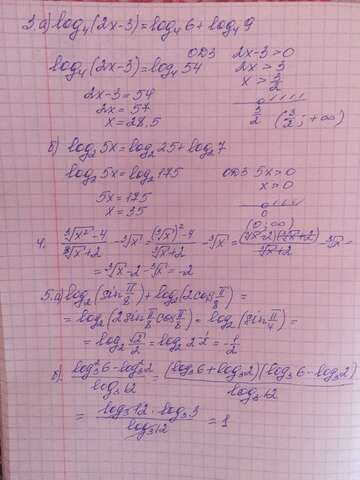 3.а) log₄(2x-3)=log₄6+log₄9
ОДЗ 2x-3>0
log₄(2x-3)=log₄54 2x>3
2x-3=54 x>3/2
2x=57
x=28,5 3/2 (3/2;+∞)
б) log₂5x=log₂25+log₂7
log₂5x=log₂175 ОДЗ 5x>0
5x=175 x>0
x=35 0
(0;∞)
4. (∛x²-4)/(∛x+2) - ∛x = ((∛x)²-4)/(∛x+2) - ∛x = (∛x-2)(∛x+2)/(∛x+2) - ∛x =
= ∛x-2-∛x=-2
5.а) log₂(sin π/8)+log₂(2cos π/8) =
= log₂(2sin π/8 cos π/8) = log₂(sin π/4) =
= log₂ √2/2 = log₂ 2 = -1/2
(log₃²6-log₃²2)/log₃12 = (log₃6+log₃2)(log₃6-log₃2)/log₃12
= log₃12·log₃3/log₃12 = 1